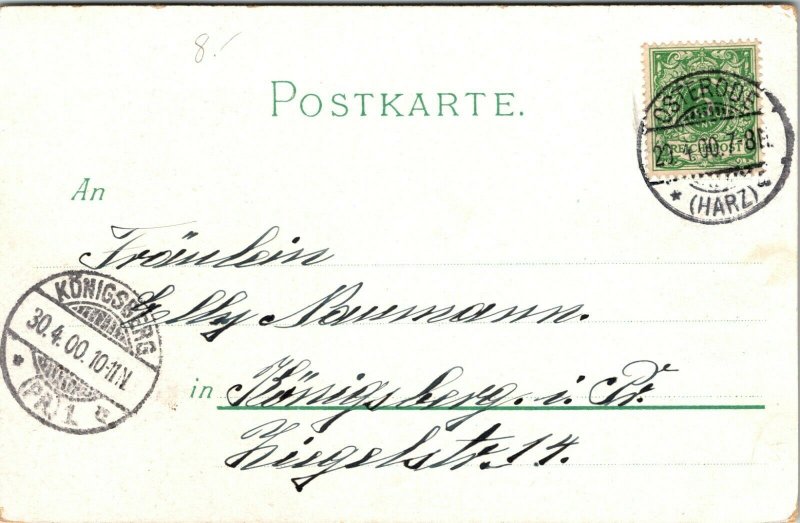 8.-
POSTKARTE.
OSTERODE
4.00.7-8N.
REICHSPOST
* (HARZ) B
An
Fräulein
Nelly Naumann.
KÖNIGSBERG
30.4.00.10-11N
* (PR.) 1 *
in Königsberg. i. Pr.
Ziegelstr. 14.